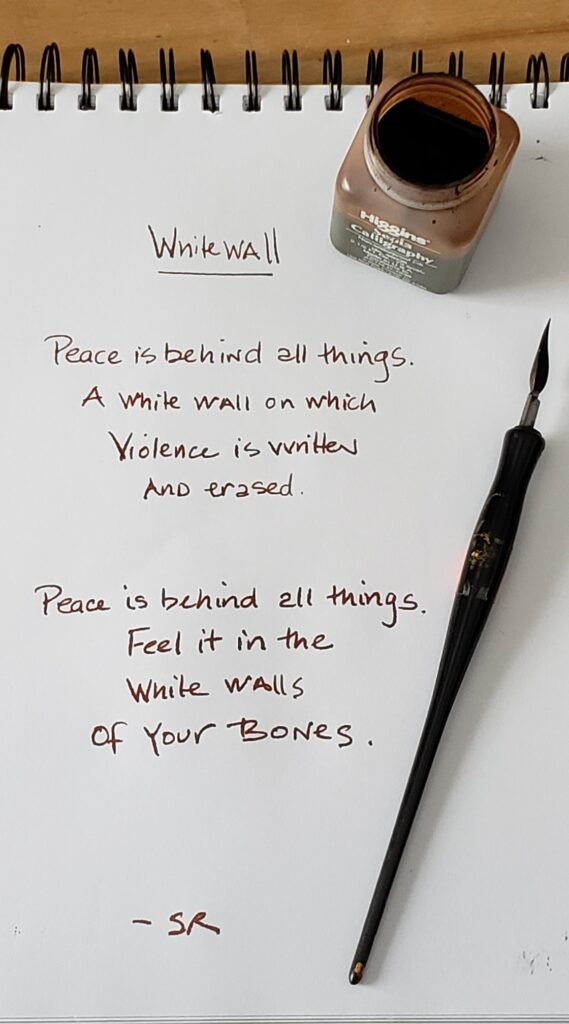 Higgins
Sepia
Calligraphy
White wall
Peace is behind all things.
A white wall on which
Violence is written
And erased.
Peace is behind all things.
Feel it in the
White walls
Of Your Bones.
- SR